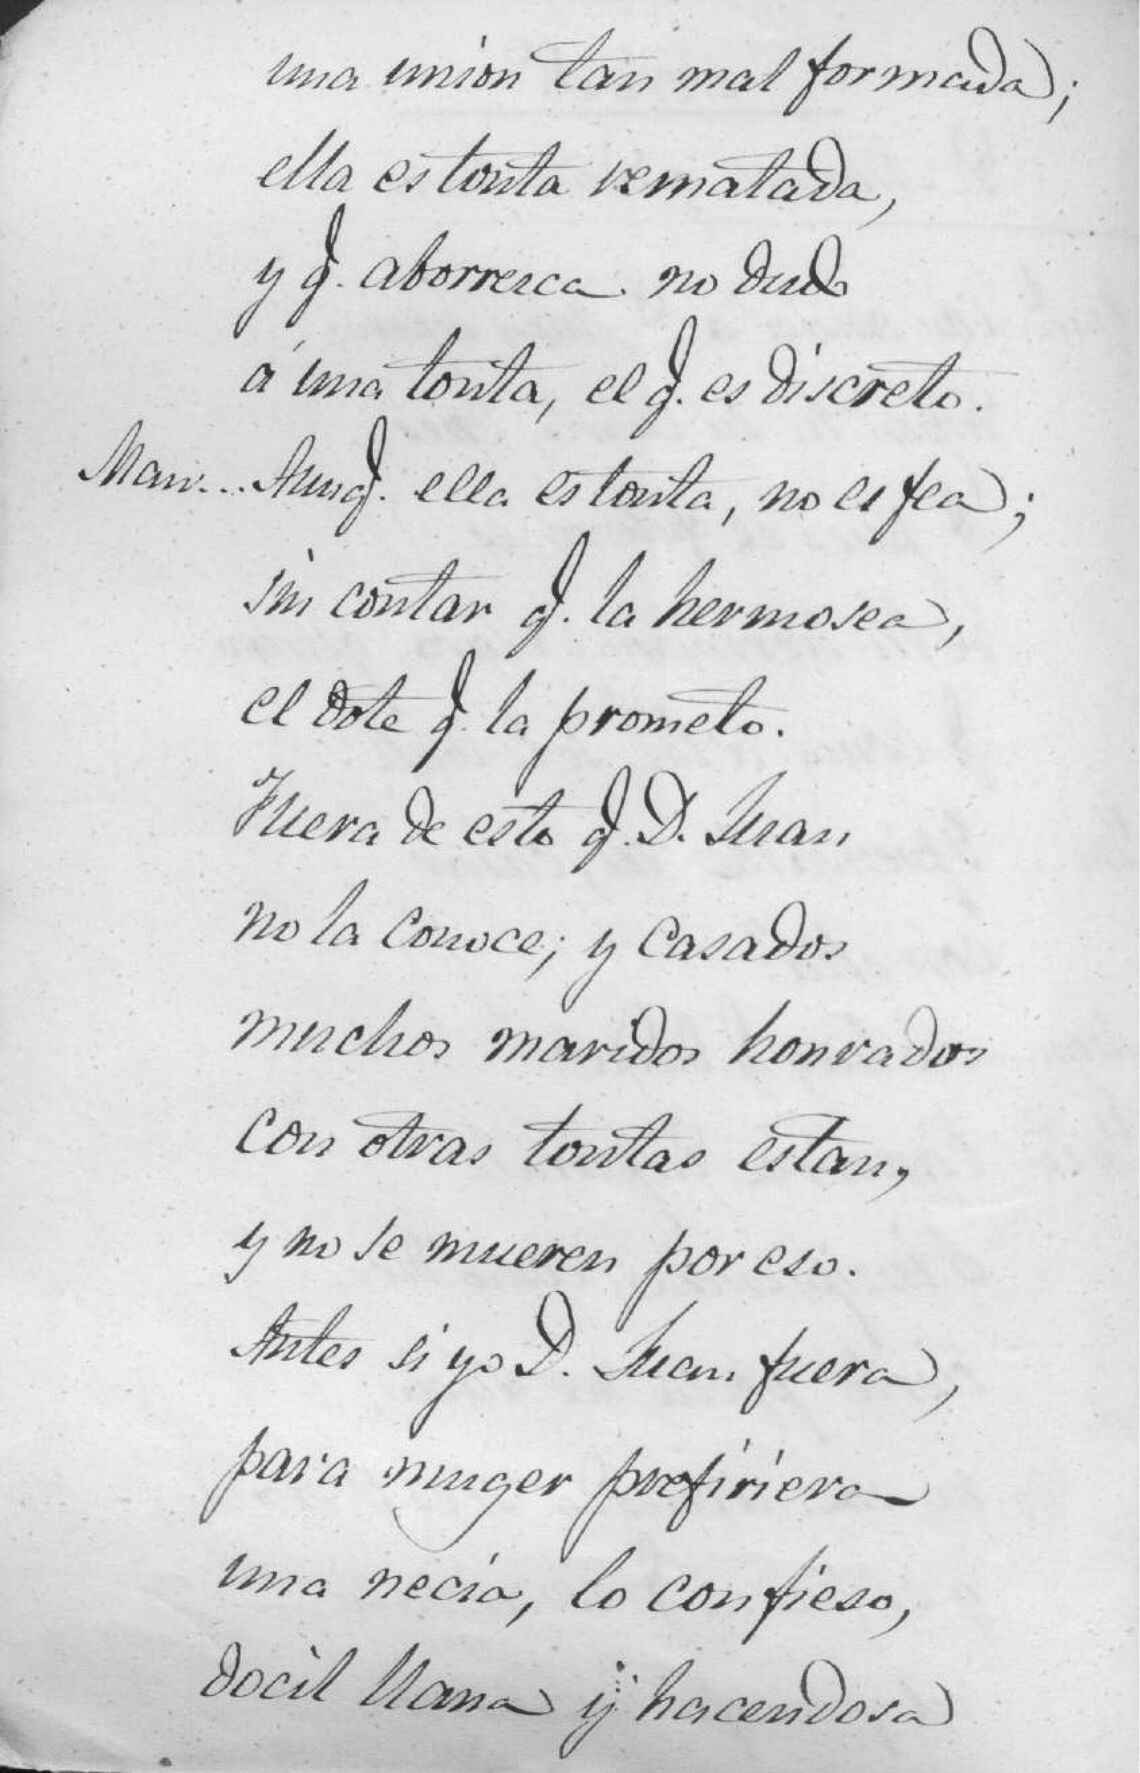 una union tan mal formada;
ella es tonta rematada,
y q. aborresca no dudo
á una tonta, el q. es discreto.
Man... Aunq. ella es tonta, no es fea;
sin contar q. la hermosea,
el dote q. la prometo.
Fuera de esto q. D. Juan
no la conoce; y casados
muchos maridos honrados
con otras tontas estan,
y no se mueren por eso.
Antes si yo D. Juan fuera,
para muger prefiriera
una necia, lo confieso,
docil llana y hacendosa